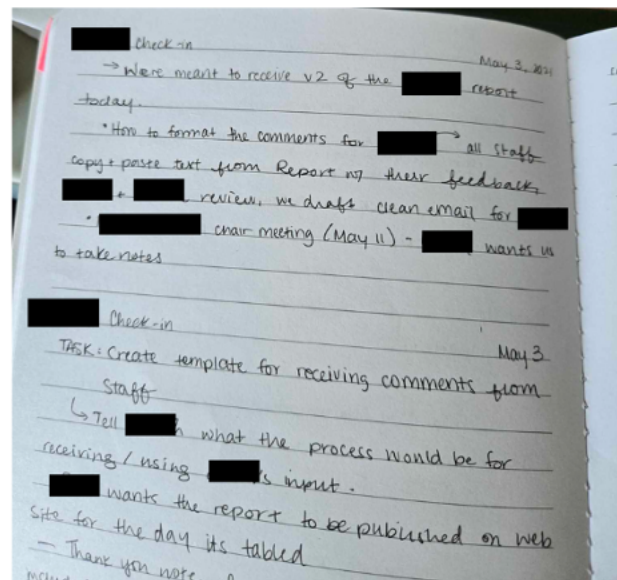 check-in
May 3, 2021
→ Were meant to receive v2 of the report
today.
• How to format the comments for → all staff
copy + paste text from Report my their feedback,
+ review, we draft clean email for
• chair meeting (May 11) - wants us
to take notes
Check-in
May 3
TASK: Create template for receiving comments from
Staff
↳ Tell what the process would be for
receiving / using 's input.
wants the report to be published on web
site for the day its tabled
— Thank you note